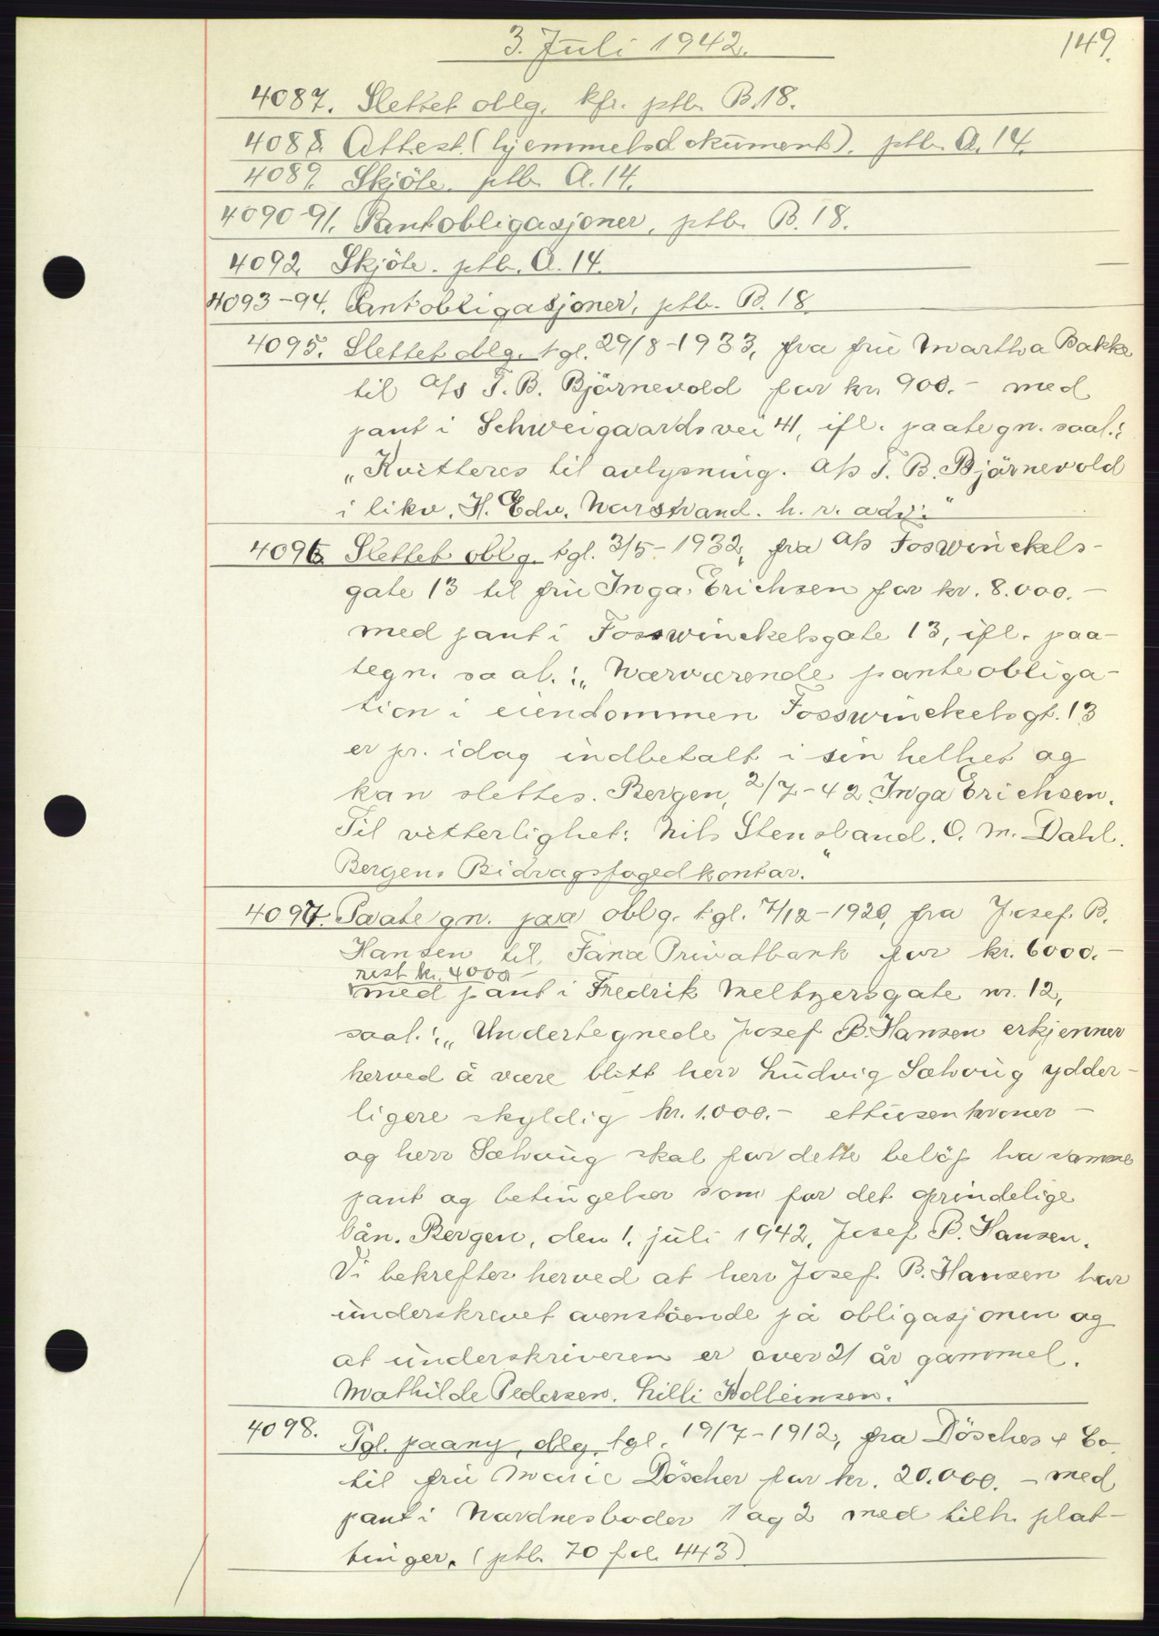 3. Juli 1942.
149.
4087. Slettet oblg. kfr. ptb. B. 18.
4088. Attest. (hjemmelsdokument). ptb. A. 14.
4089. Skjöte. ptb. A. 14.
4090-91. Pantobligasjoner, ptb. B. 18.
4092. Skjöte. ptb. A. 14.
4093-94. Pantobligasjoner, ptb. B. 18.
4095. Slettet oblg. tgl. 29/8-1933, fra frü Martha Bakke
til A/S T. B. Björnevold for kr. 900.- med
pant i Schweigaardsvei 41, ifl. paategn. saal.:
„Kvitteres til avlysning. A/s T. B. Björnevold
i likv. H. Edv. Narstrand. h. r. adv."
4096. Slettet oblg. tgl. 3/5-1932, fra A/s Foswinckels-
gate 13 til frü Inga Erichsen for kr. 8.000.-
med pant i Fosswinckelsgate 13, ifl. paa-
tegn. saal.: „Nærværende panteobliga-
tion i eiendommen Fosswinckelsgt. 13
er pr. idag indbetalt i sin helhet og
kan slettes. Bergen, 2/7-42. Inga Erichsen.
Til vitterlighet: Nils Stensland. O. M. Dahl.
Bergens Bidragsfogedkontor."
4097. Paategn. paa oblg. tgl. 7/12-1920, fra Josef B.
Hansen til Fana Privatbank for kr. 6000.-
rest kr. 4000.-
med pant i Fredrik Meltzersgate nr. 12,
saal.: „Undertegnede Josef B. Hansen erkjenner
herved å være blitt herr Lüdvig Sælvüg ydder-
ligere skyldig kr. 1.000.- ettusenkroner -
og herr Sælvüg skal for dette belöp ha samme
pant og betingelser som for det oprindelige
lån. Bergen, den 1. juli 1942. Josef B. Hansen.
Vi bekrefter herved at herr Josef B. Hansen har
ünderskrevet ovenstående på obligasjonen og
at ünderskriveren er over 21 år gammel.
Mathilde Pedersen. Lilli Kolbeinsen."
4098. Tgl. paany, oblg. tgl. 19/7-1912, fra Döscher & Co.
til frü Marie Döscher for kr. 20.000.- med
pant i Nordnesboder 1 og 2 med tilh. plat-
tinger. (ptb. 70 fol. 443)